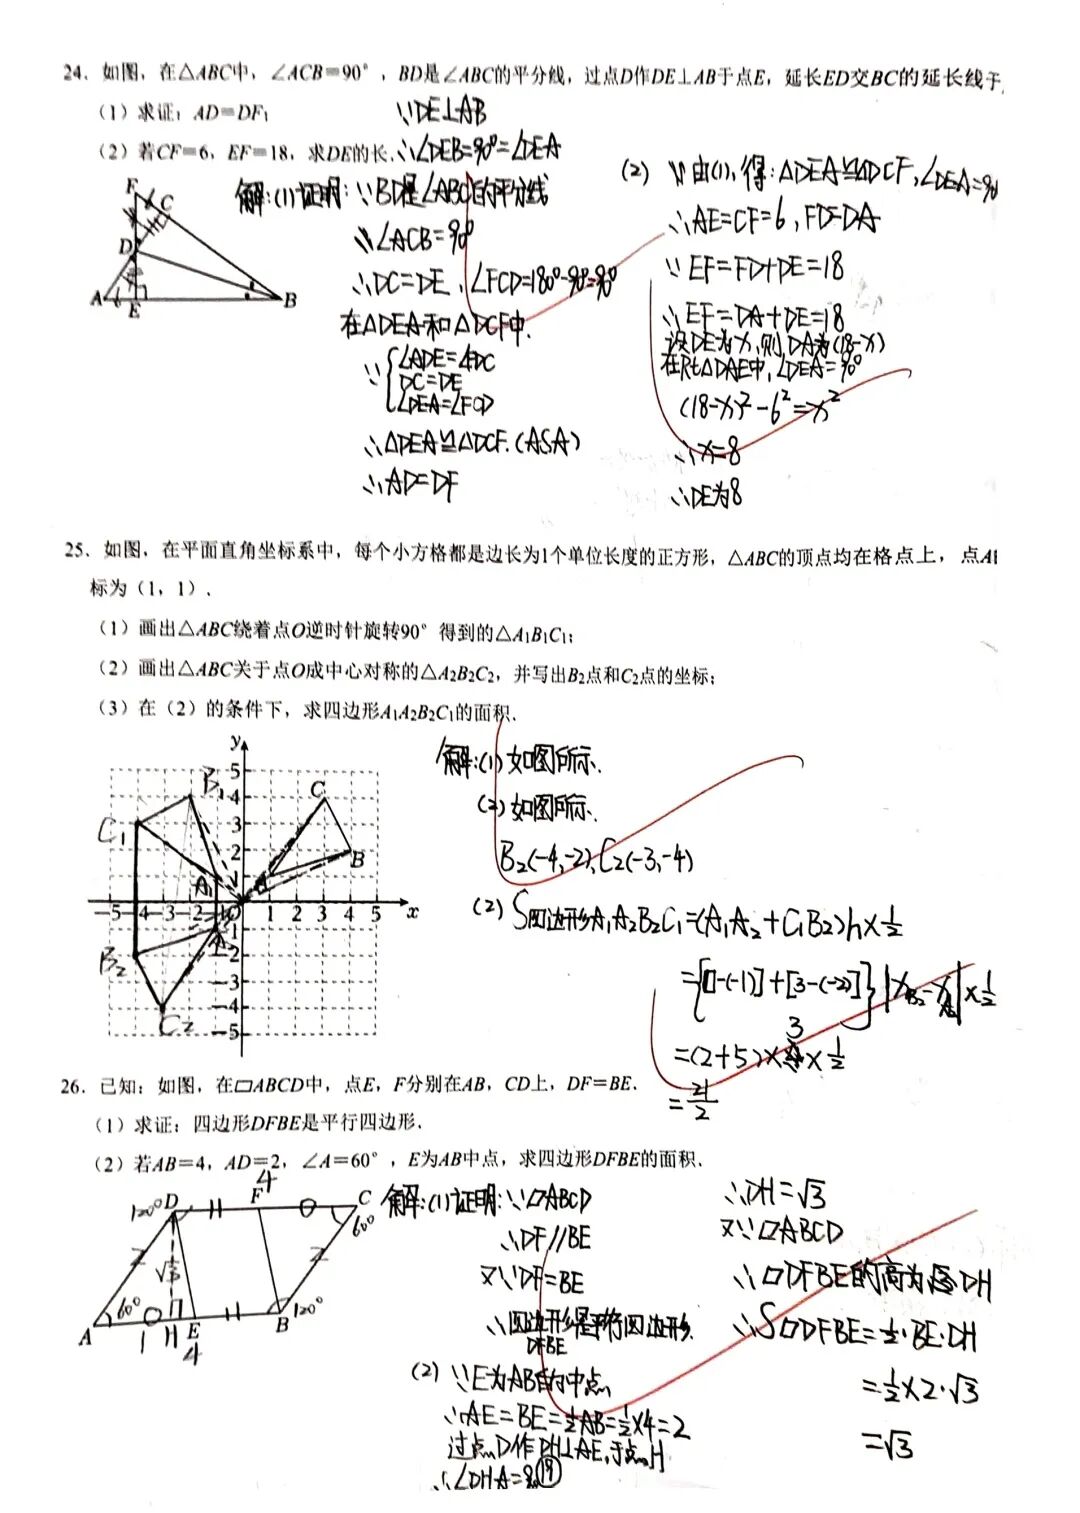 24. 如图，在△ABC中，∠ACB=90°，BD是∠ABC的平分线，过点D作DE⊥AB于点E，延长ED交BC的延长线于
(1) 求证：AD=DF；
∵DE⊥AB
(2) 若CF=6，EF=18，求DE的长.
∴∠DEB=90°=∠DEA
解：(1)证明：∵BD是∠ABC的平分线
∵∠ACB=90°
∴DC=DE，∠FCD=180°-90°=90°
在△DEA和△DCF中.
∵{∠ADE=∠FDC
DC=DE
∠DEA=∠FCD
∴△DEA≌△DCF.(ASA)
∴AD=DF
(2) ∵由(1)，得：△DEA≌△DCF，∠DEA=90
∴AE=CF=6，FD=DA
∵EF=FD+DE=18
∴EF=DA+DE=18
设DE为x，则DA为(18-x)
在Rt△DAE中，∠DEA=90°
(18-x)²-6²=x²
∴x=8
∴DE为8
F
C
D
A
E
B
25. 如图，在平面直角坐标系中，每个小方格都是边长为1个单位长度的正方形，△ABC的顶点均在格点上，点A
标为（1，1）.
(1) 画出△ABC绕着点O逆时针旋转90°得到的△A₁B₁C₁；
(2) 画出△ABC关于点O成中心对称的△A₂B₂C₂，并写出B₂点和C₂点的坐标；
(3) 在（2）的条件下，求四边形A₁A₂B₂C₁的面积.
解：(1) 如图所示.
(2) 如图所示.
B₂(-4,-2)，C₂(-3,-4)
(2) S四边形A₁A₂B₂C₁=(A₁A₂+C₁B₂)h×½
={[1-(-1)]+[3-(-2)]}|x_B₂-x_A₂|×½
=(2+5)×3×½
=21/2
y
5
4
3
2
1
B₁
C
C₁
B
A₁
A
-5 -4 -3 -2 -1 O 1 2 3 4 5 x
A₂
B₂
C₂
-1
-2
-3
-4
-5
26. 已知：如图，在▱ABCD中，点E，F分别在AB，CD上，DF=BE.
(1) 求证：四边形DFBE是平行四边形.
(2) 若AB=4，AD=2，∠A=60°，E为AB中点，求四边形DFBE的面积.
4
120° D F C
60°
2
√3
2
60°
A 1 H E B 120°
4
解：(1)证明：∵▱ABCD
∴DF∥BE
又∵DF=BE
∴四边形DFBE是平行四边形.
(2) ∵E为AB的中点
∴AE=BE=½AB=½×4=2
过点D作DH⊥AE，于点H
∴∠DHA=90
19
∴DH=√3
又∵▱ABCD
∴▱DFBE的高为DH
∴S▱DFBE=½·BE·DH
=½×2·√3
=√3